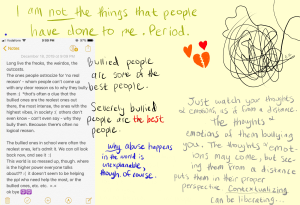 I am not the things that people
have done to me. Period.
Notes
Long live the freaks, the weirdos, the
outcasts.
The ones people ostracize for 'no real
reason' - whom people can't come up
with any clear reason as to why they bully
them :( *that's often a clue that the
bullied ones are the realest ones out
there, the most intense, the ones with the
highest vibes, in society :( others don't
even know - can't even say - why they
bully them. Because: there's often no
logical reason.
The bullied ones in school were often the
realest ones, let's admit it. We can all look
back now, and see it :(
This world is so messed up, though, where
is the higher power everyone talks
about? :( It doesn't seem to be helping
the ppl who need help the most, or the
bullied ones, etc. etc.
ok bye
Bullied people
are some of the
best people.
Severely bullied
people are the best
people.
Why abuse happens
in the world is
unexplainable,
though, of course.
Just watch your thoughts
& emotions as if from a distance.
The thoughts &
emotions of them bullying
you. The thoughts & emot-
ions may come, but see-
ing them from a distance
puts them in their proper
perspective. Contextualizing
can be liberating...